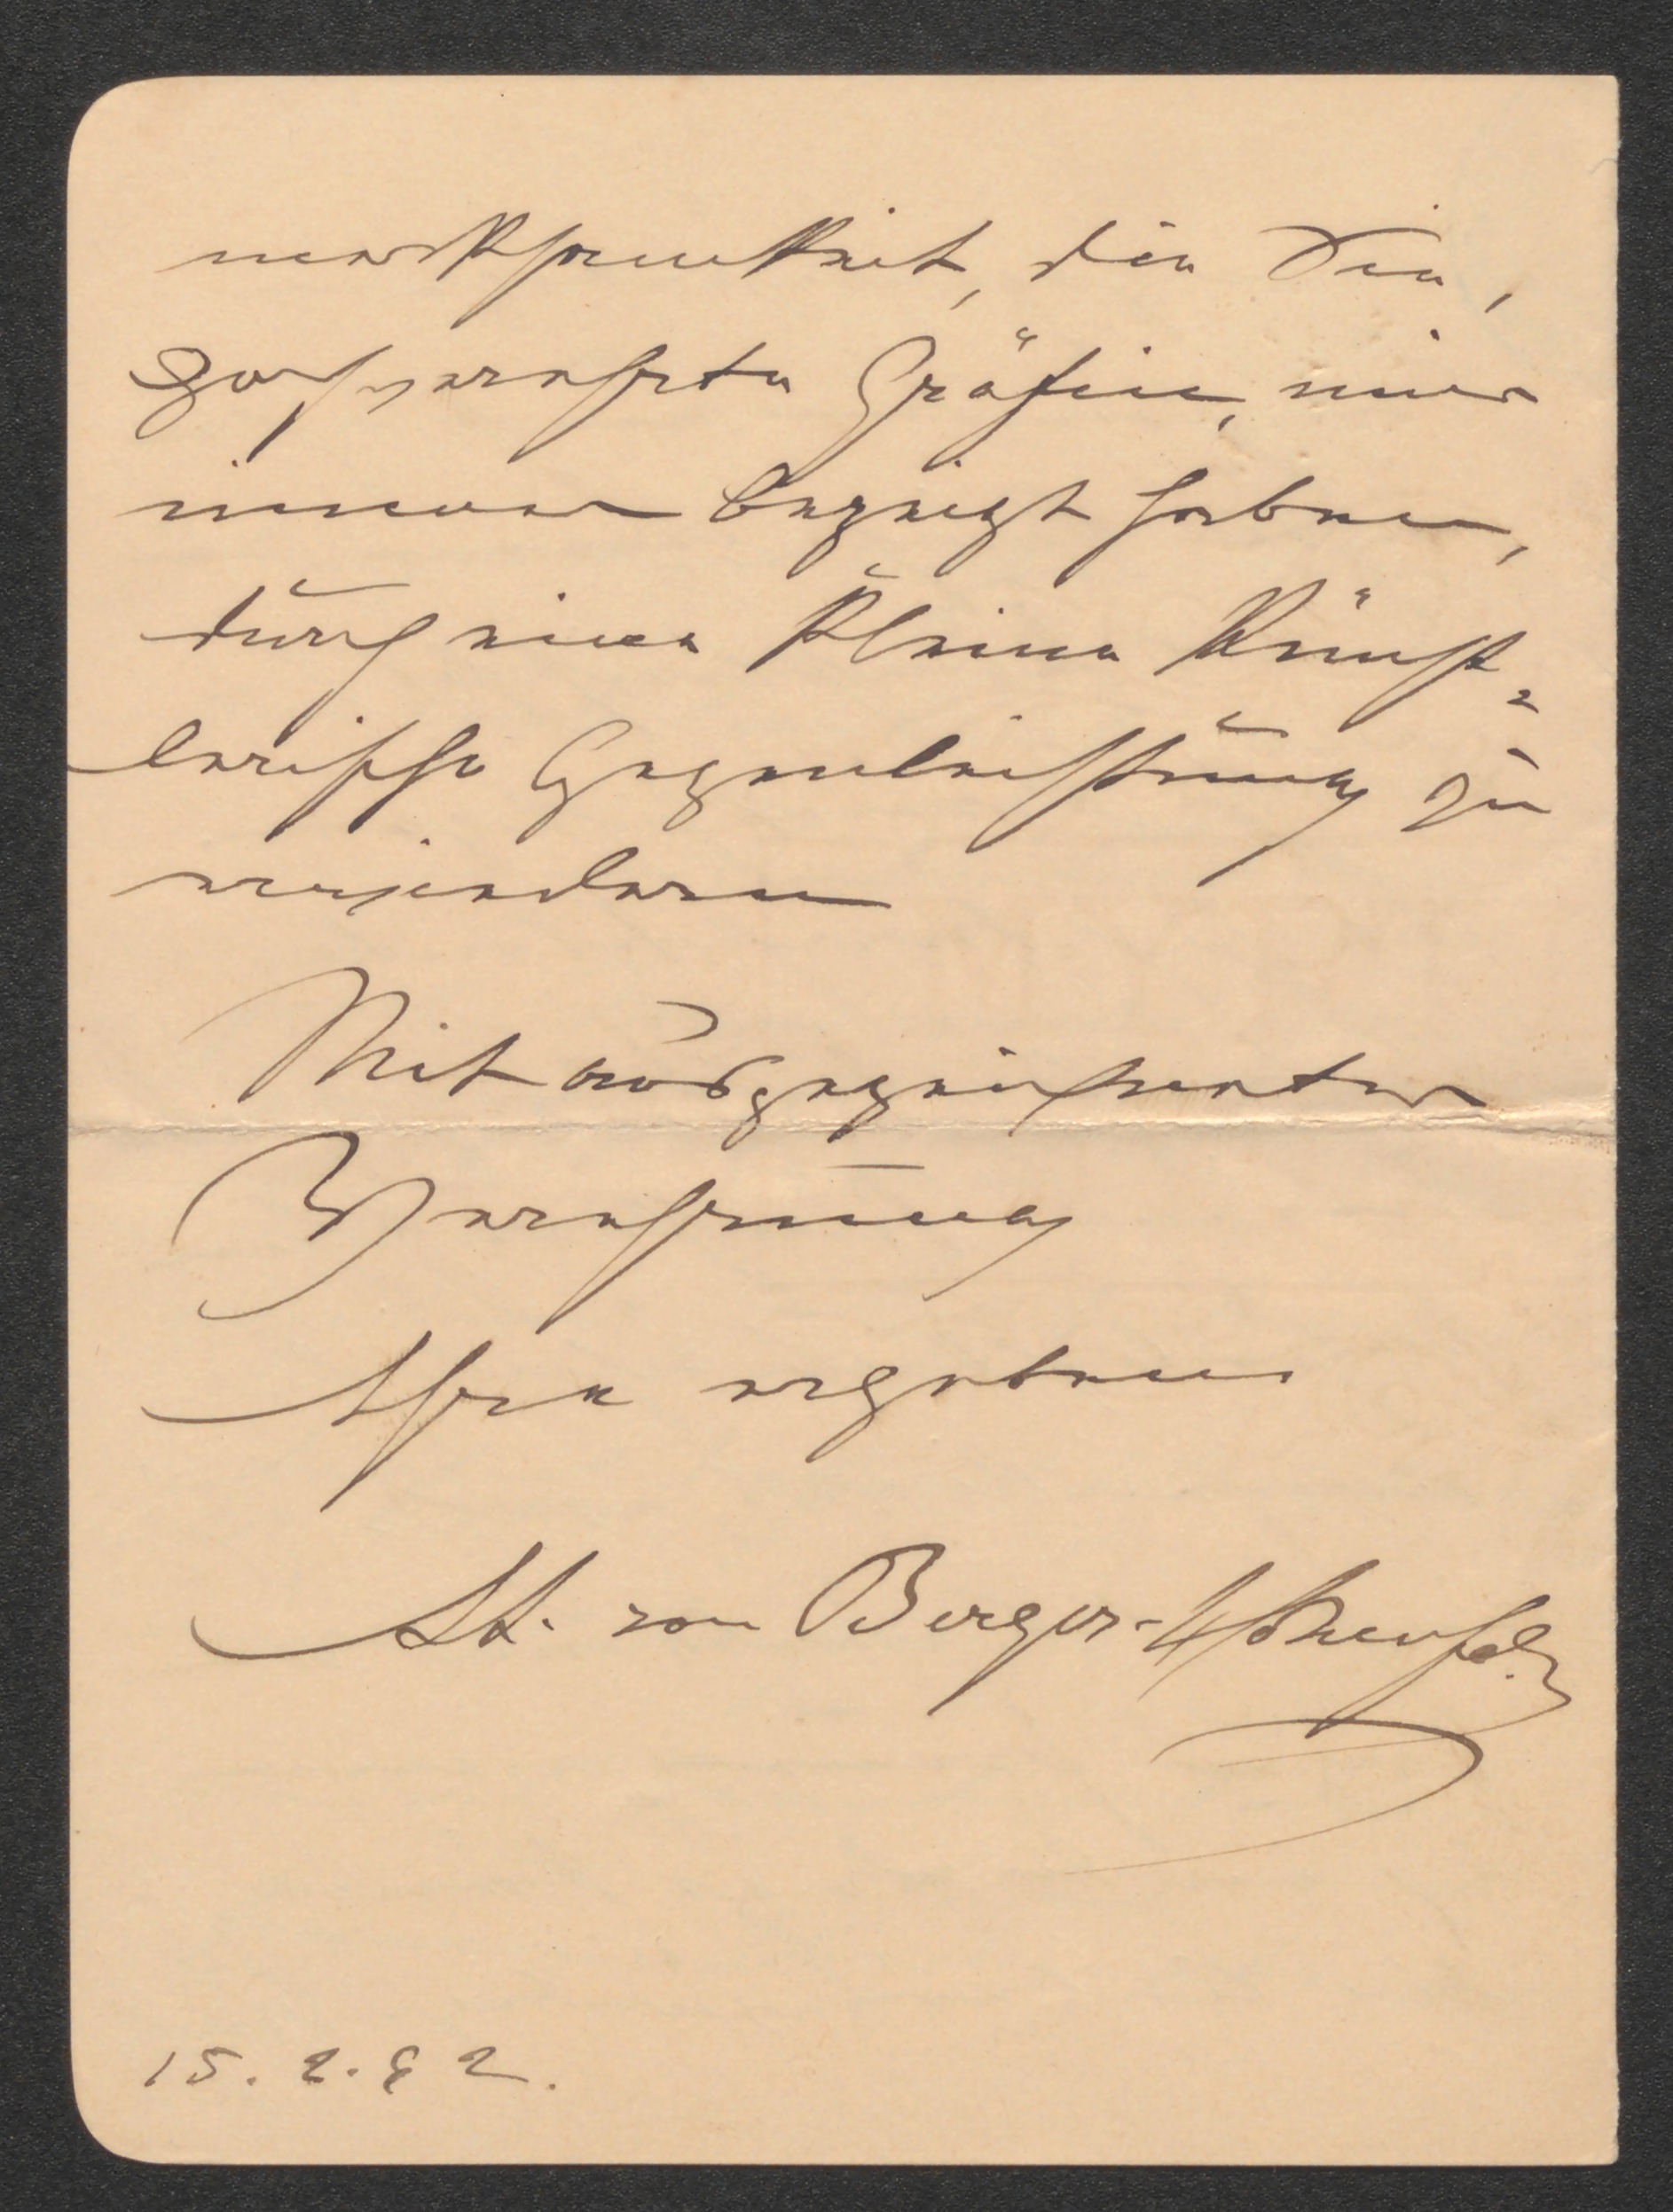 merksamkeit, die Sie,
hochverehrte Gräfin, mir
immer bezeigt haben,
durch eine kleine künst=
lerische Gegenleistung zu
erwiedern
Mit ausgezeichneter
Verehrung
Ihre ergebene
St. von Berger-Hohenfels
15. 2. 92.